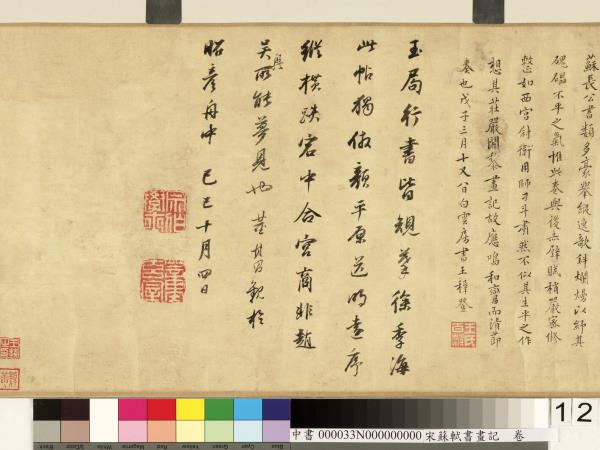 蘇長公書類多豪舉縱逸欹斜爛熳以紓其
磈礧不平之氣惟此卷與後赤壁賦稍嚴密修
整如西宮封衛用師刁斗肅然不似其生平之作
想其莊嚴閣黍畫記故應鳴和鸞而清節
奏也戊子三月十又八日白雲居書王穉登
玉局行書皆規摹徐季海
此帖獨倣顏平原送明遠序
縱橫跌宕中合宮商非趙
吳興所能夢見也董其昌觀於
昭彥舟中己巳十月四日
1 2
中書 000033N000000000 宋蘇軾書畫記 卷
Black
White
Magenta
Red
Yellow
Green
Cyan
Blue